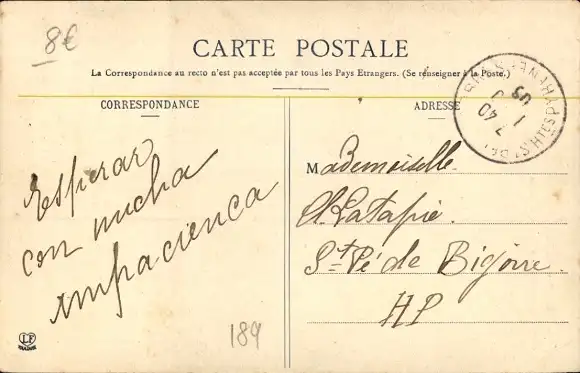 8€
CARTE POSTALE
La Correspondance au recto n'est pas acceptée par tous les Pays Etrangers. (Se renseigner à la Poste.)
CORRESPONDANCE
ADRESSE
Esperar
con mucha
impaciencia
Mademoiselle
Latapie.
St Pé de Bigorre.
HP
189
7 40
LF